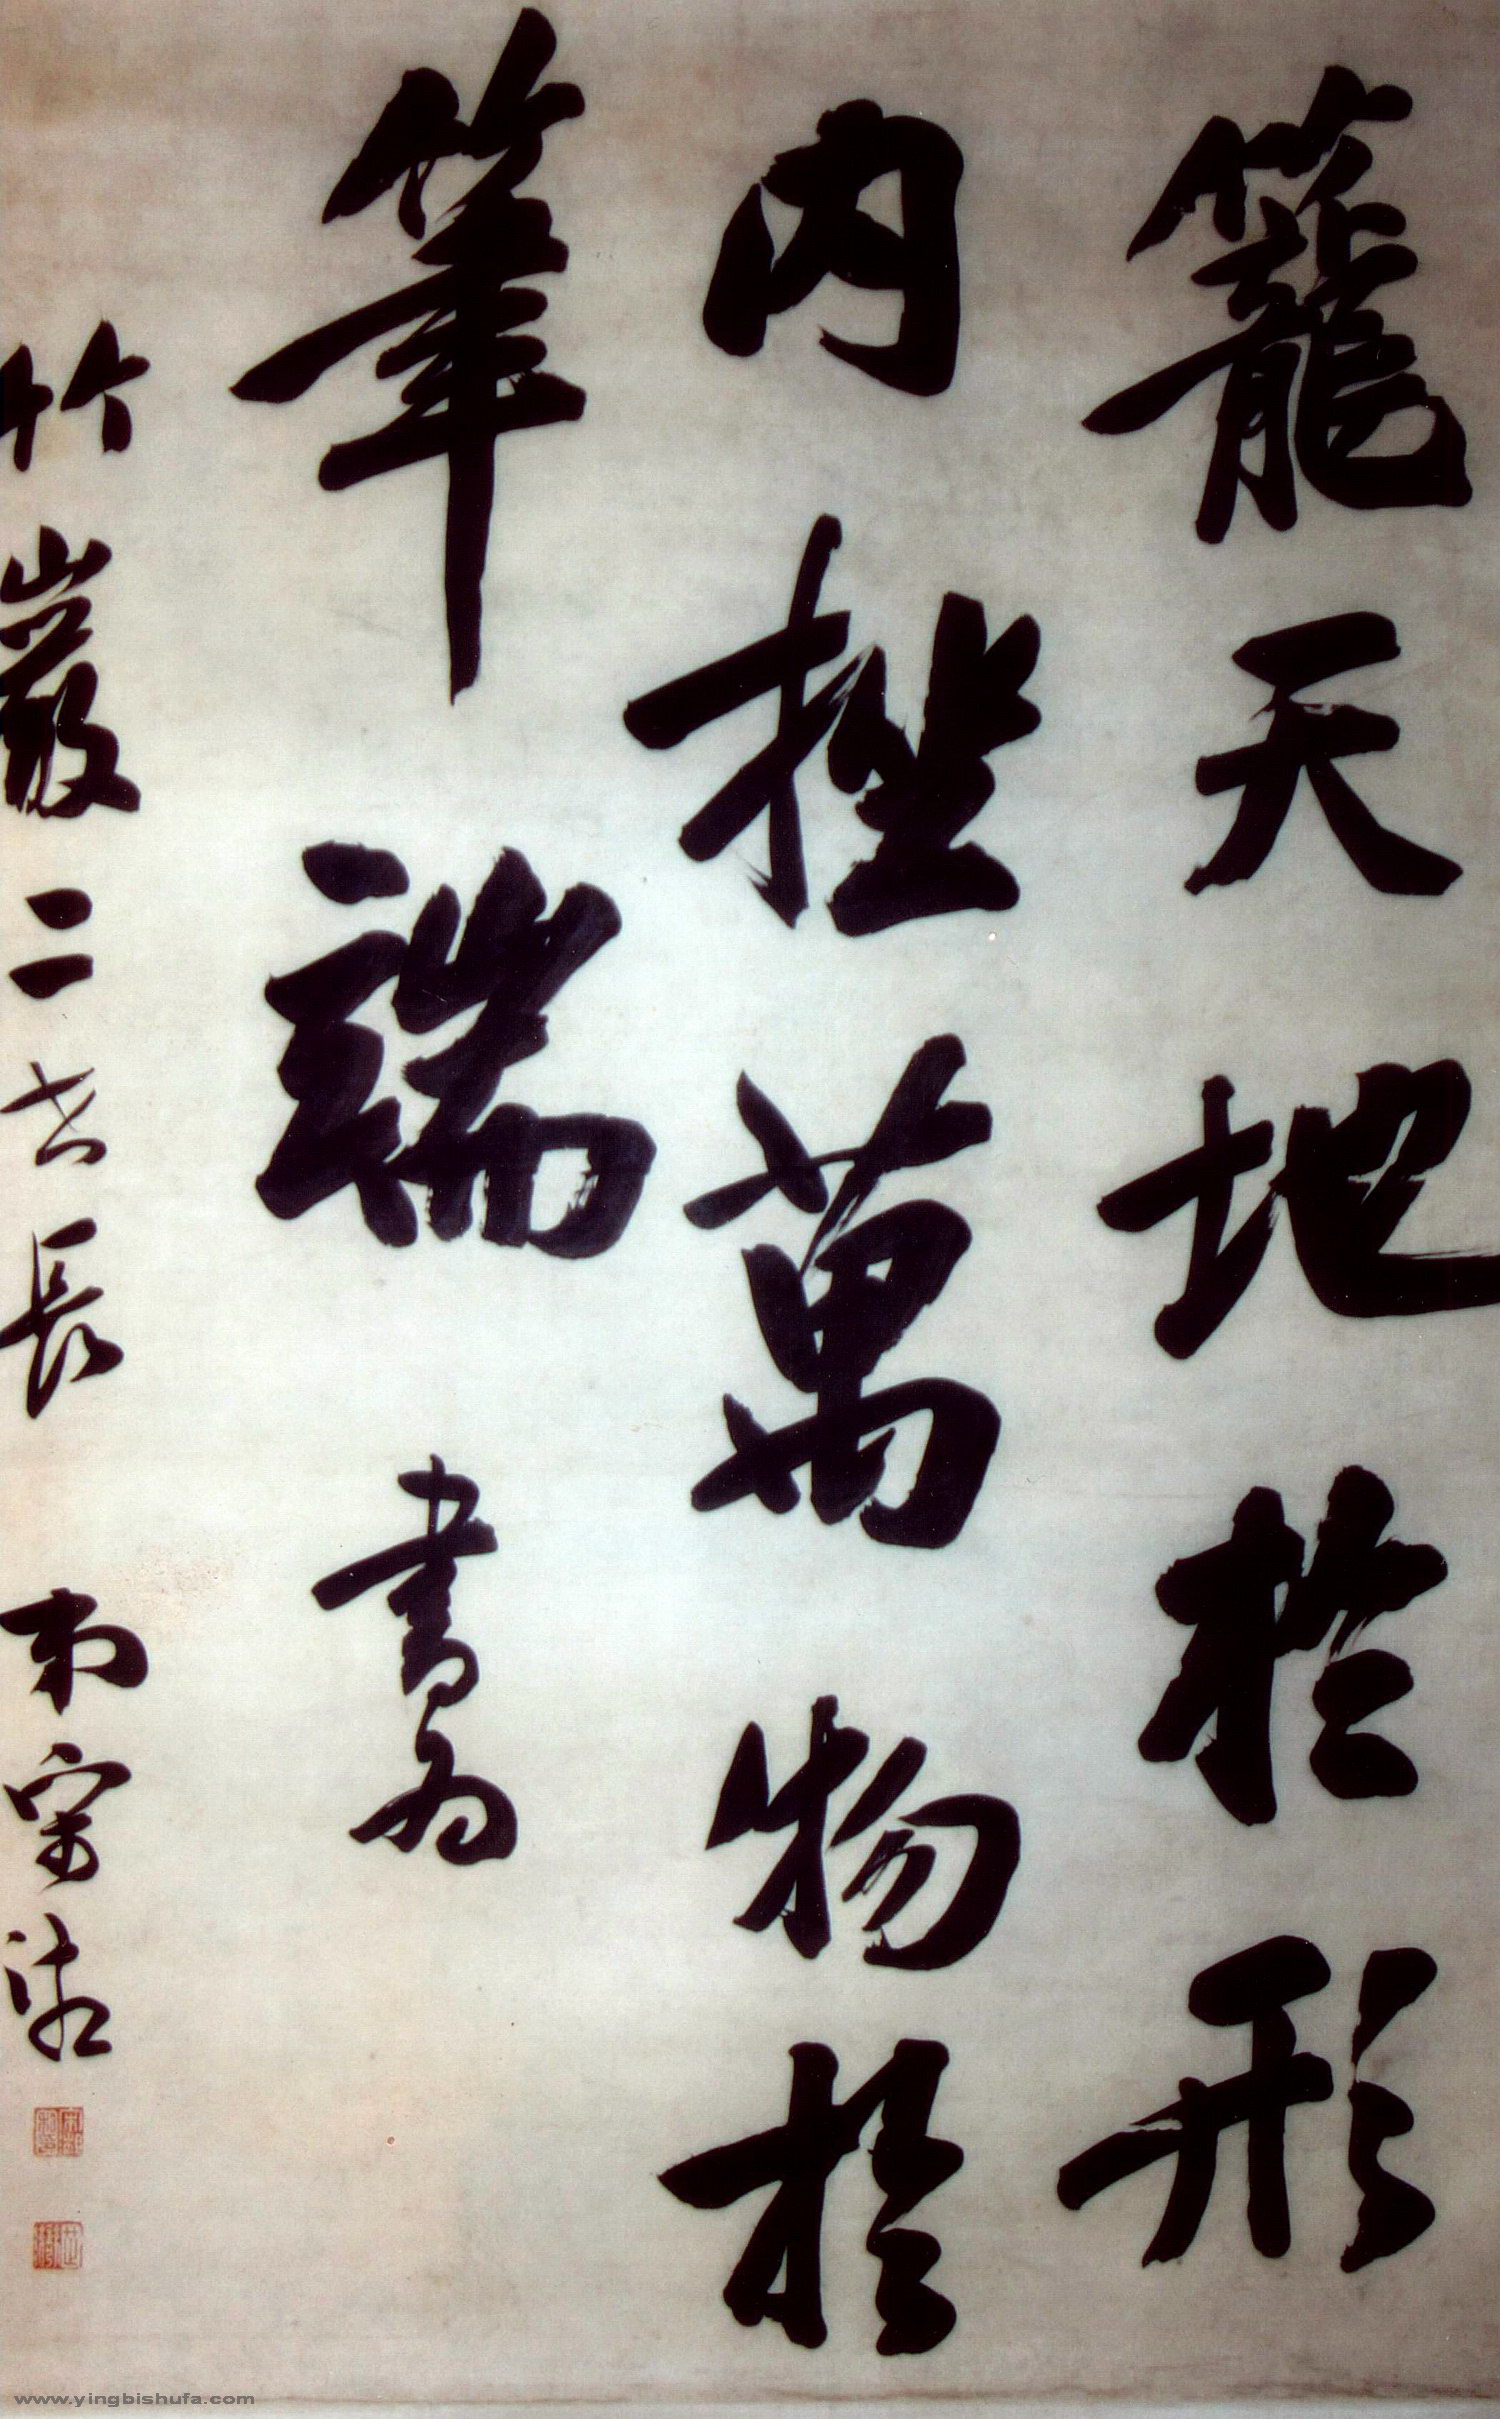 籠天地於形
内挫萬物於
筆端 書為
竹巖二世長
www.yingbishufa.com